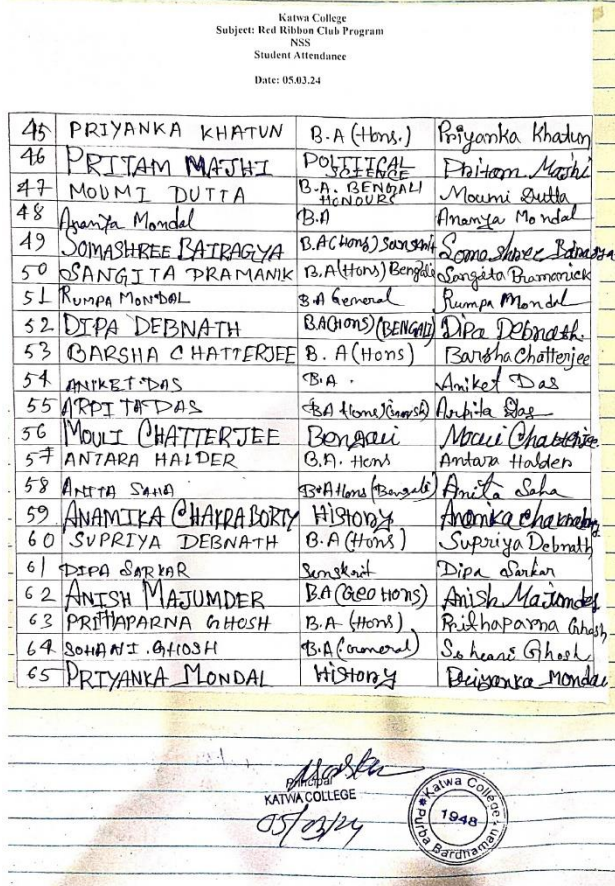 Katwa College
Subject: Red Ribbon Club Program
NSS
Student Attendance
Date: 05.03.24
45 PRIYANKA KHATUN B.A (Hons.) Priyanka Khatun
46 PRITAM MAJHI POLITICAL SCIENCE Pritam Majhi
47 MOUMI DUTTA B.A. BENGALI HONOURS Moumi Dutta
48 Ananya Mondal B.A Ananya Mondal
49 SOMASHREE BAIRAGYA B.A(Hons) Sanskrit Somashree Bairagya
50 SANGITA PRAMANIK B.A(Hons) Bengali Sangita Pramanick
51 RUMPA MONDAL B.A General Rumpa Mondal
52 DIPA DEBNATH B.A(Hons) (BENGALI) Dipa Debnath.
53 BARSHA CHATTERJEE B. A(Hons) Barsha Chatterjee
54 ANIKET DAS B.A. Aniket Das
55 ARPITA DAS BA Hons Arpita Das
56 MOULI CHATTERJEE Bengali Mouli Chatterjee
57 ANTARA HALDER B.A. Hons Antara Halder
58 ANITA SAHA B.A Hons (Bengali) Anita Saha
59 ANAMIKA CHAKRABORTY History Anamika Chakraborty
60 SUPRIYA DEBNATH B.A (Hons) Supriya Debnath
61 DIPA SARKAR Sanskrit Dipa Sarkar
62 ANISH MAJUMDER B.A (Geo Hons) Anish Majumder
63 PRITHAPARNA GHOSH B.A (Hons) Prithaparna Ghosh
64 SOHANI GHOSH B.A (General) Sohani Ghosh
65 PRIYANKA MONDAL History Priyanka Mondal
Principal
KATWA COLLEGE
05/03/24
Katwa College
1948
Purba Bardhaman